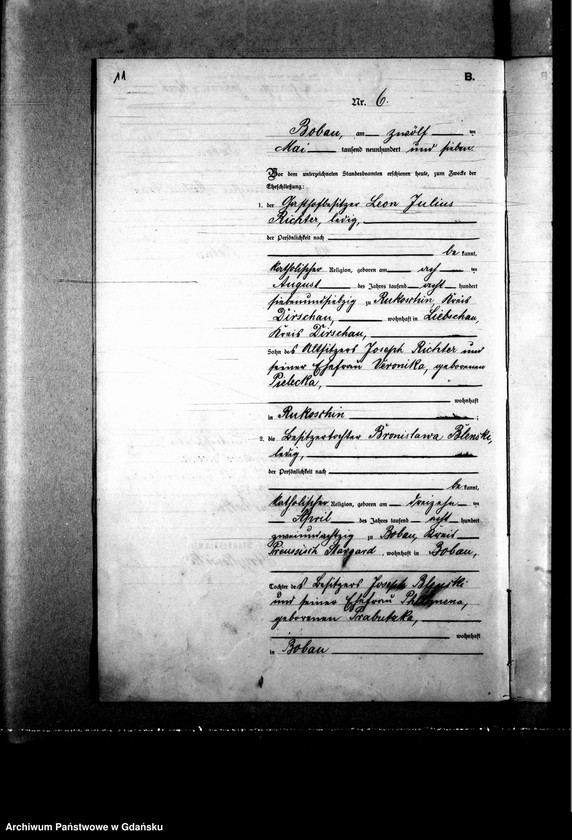 11
B.
Nr. 6.
Bobau, am zwölf ten
Mai tausend neunhundert und sieben.
Vor dem unterzeichneten Standesbeamten erschienen heute, zum Zwecke der
Eheschließung:
1. der Gasthofbesitzer Leon Julius
Richter, ledig,
der Persönlichkeit nach
be kannt,
katholischer Religion, geboren am acht ten
August des Jahres tausend acht hundert
siebenundsiebzig zu Rukoschin, Kreis
Dirschau, wohnhaft in Liebschau,
Kreis Dirschau,
Sohn des Altsitzers Joseph Richter und
seiner Ehefrau Veronika, geborenen
Pielecka,
wohnhaft
in Rukoschin ;
2. die Besitzertochter Bronislawa Blenski,
ledig,
der Persönlichkeit nach
be kannt,
katholischer Religion, geboren am dreizehn ten
April des Jahres tausend acht hundert
zweiundachtzig zu Bobau, Kreis
Preussisch Stargard, wohnhaft in Bobau,
Tochter des Besitzers Joseph Blenski
und seiner Ehefrau Philomena,
geborenen Grabutzka,
wohnhaft
in Bobau
Archiwum Państwowe w Gdańsku